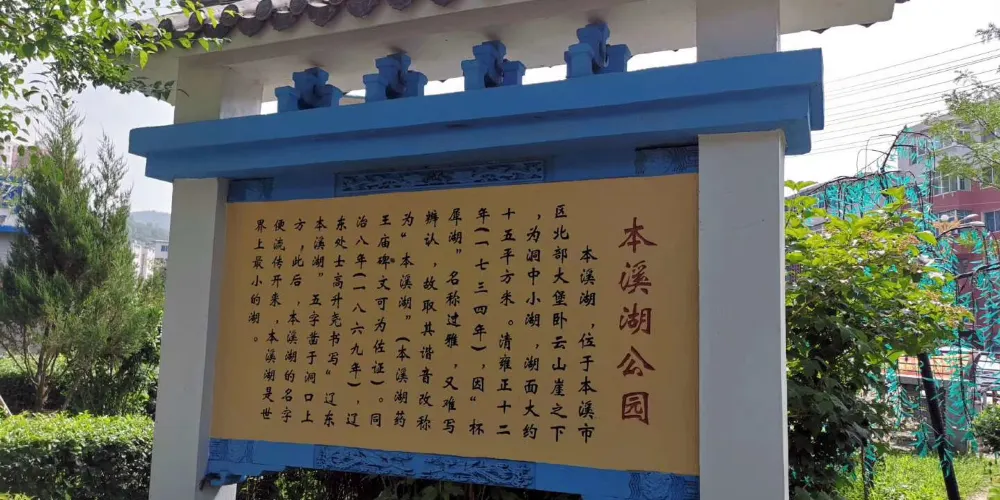 本溪湖公园
本溪湖，位于本溪市
区北部大堡卧云山崖之下
，为洞中小湖，湖面大约
十五平方米。清雍正十二
年(一七三四年)，因“杯
犀湖”名称过雅，又难写
辨认，故取其谐音改称
为“本溪湖”(本溪湖药
王庙碑文可为佐证)。同
治八年(一八六九年)，辽
东处士高升尧书写“辽东
本溪湖”五字凿于洞口上
方，此后，本溪湖的名字
便流传开来，本溪湖是世
界上最小的湖。